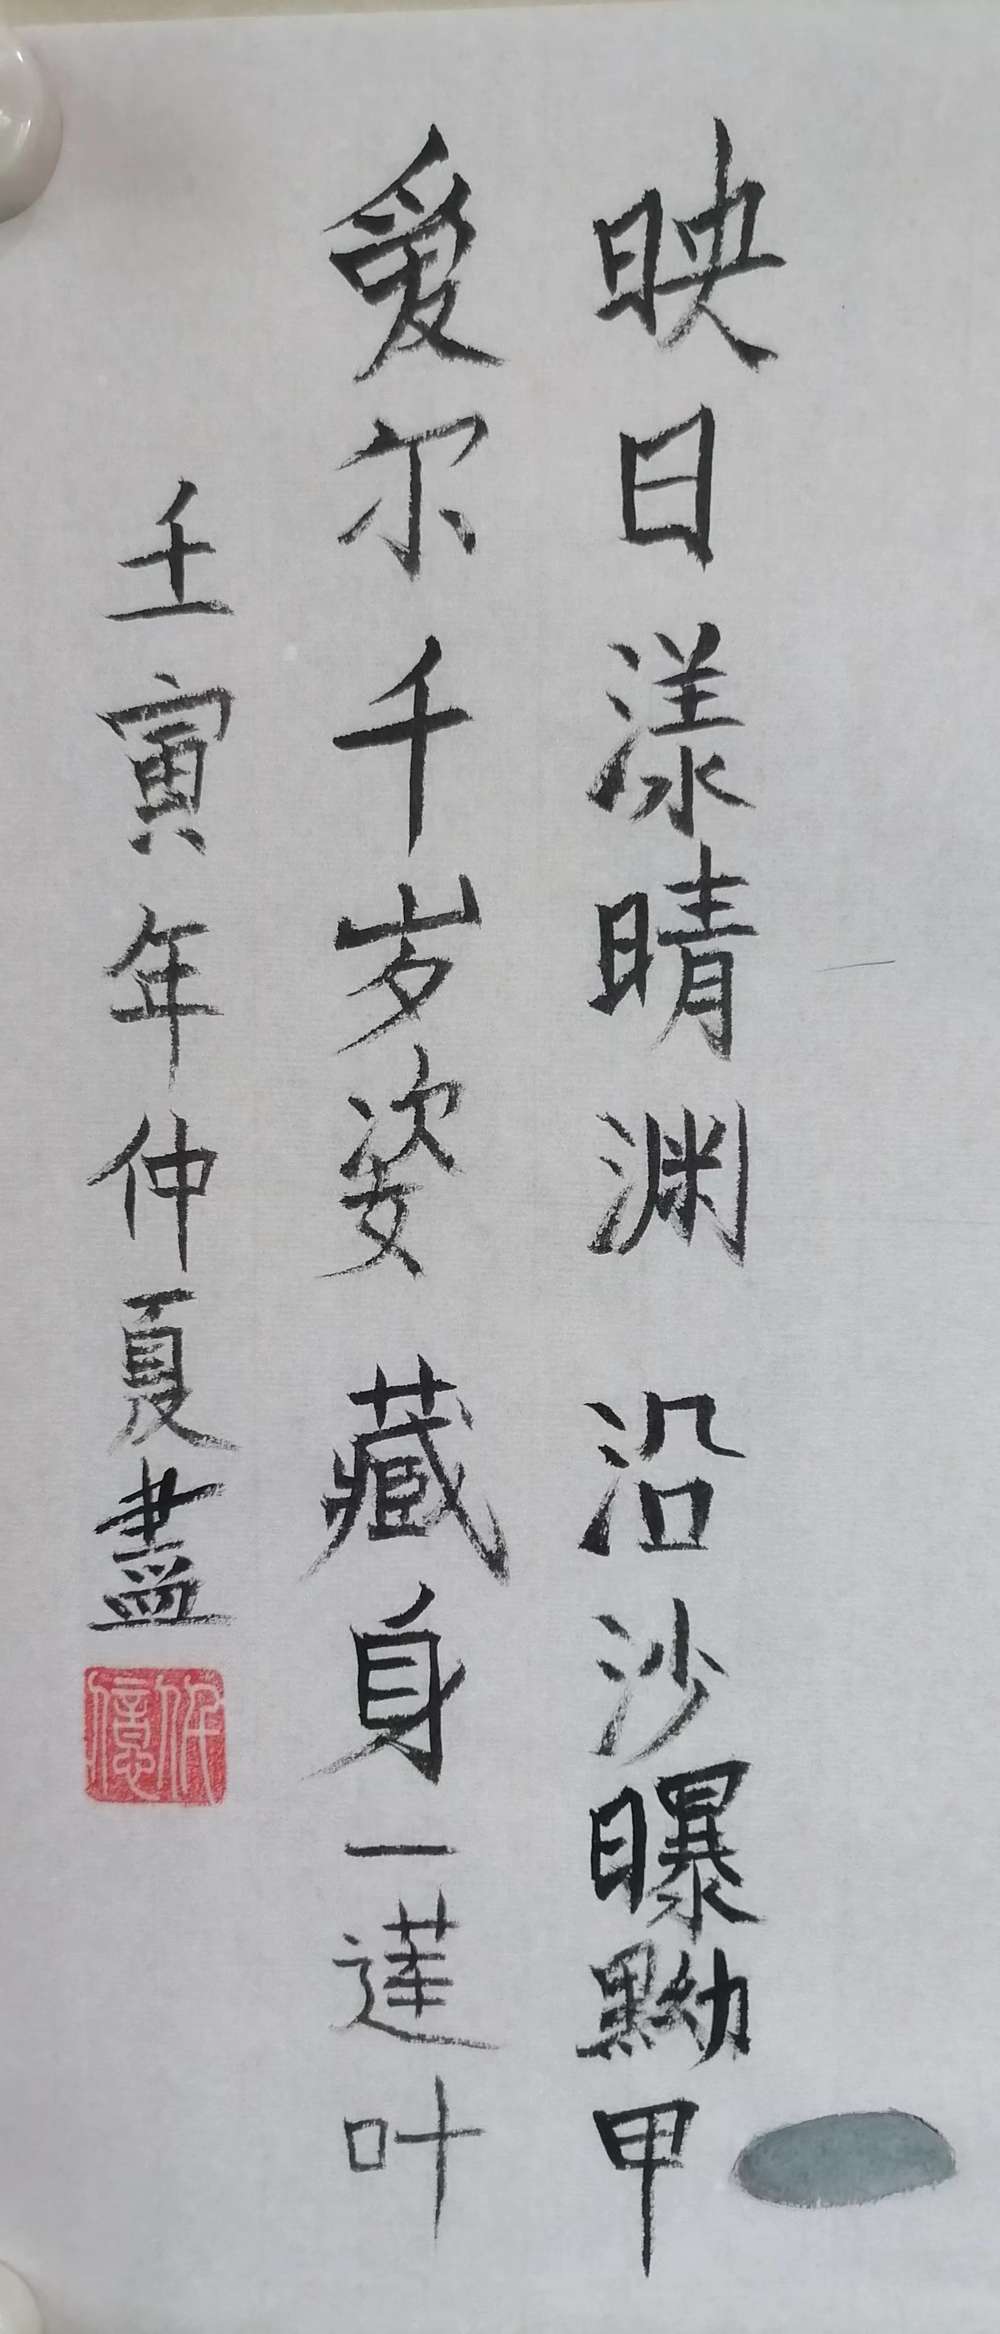 映日漾晴渊沿沙曝黝甲
爱尔千岁姿藏身一莲叶
壬寅年仲夏画